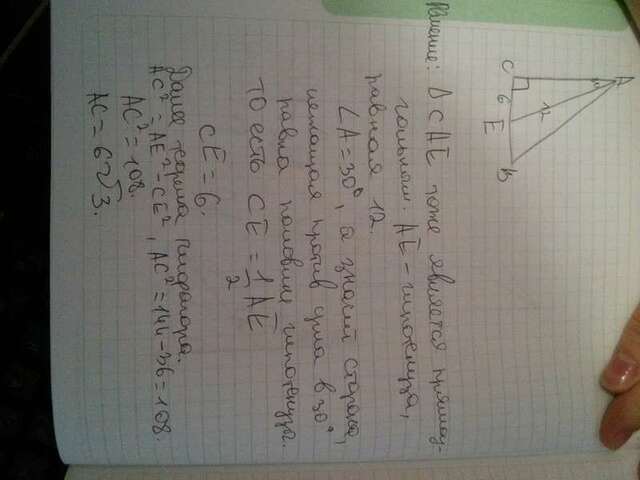 A
C
6
E
B
12
Решение: Δ CAE тоже является прямоу-
гольным. AE - гипотенуза,
равная 12.
∠A = 30°, а значит сторона,
лежащая против угла в 30°
равна половине гипотенузы.
то есть CE = 1/2 AE
CE = 6.
Далее теорема Пифагора.
AC² = AE² - CE², AC² = 144 - 36 = 108.
AC² = 108.
AC = 6√3.